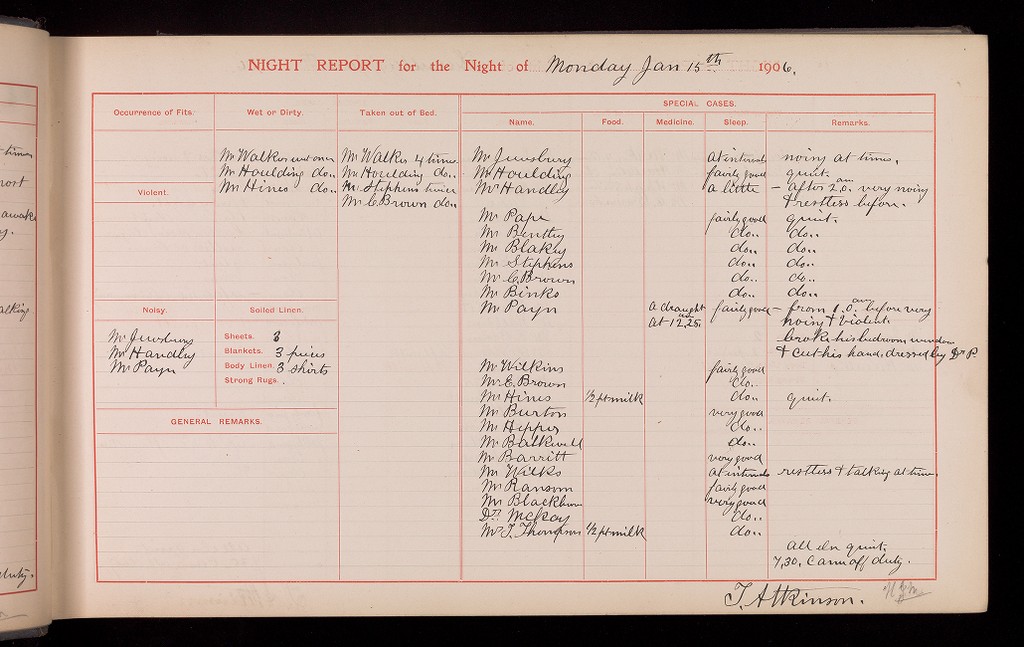 NIGHT REPORT for the Night of Monday Jan 15th 1906.
SPECIAL CASES.
Occurrence of Fits. Wet or Dirty. Taken out of Bed. Name. Food. Medicine. Sleep. Remarks.
Mr Walker wet once Mr Walker 4 times Mr Jewsbury at intervals noisy at times.
Mr Houlding do.. Mr Houlding do.. Mr Houlding fairly good quiet.
Mr Hines do.. Mr Stephens twice Mr Handley a little – after 2.0. am very noisy
Violent.
Mr C Brown do.. & restless before.
Mr Pape fairly good quiet.
Mr Bentley do.. do..
Mr Blakey do.. do..
Mr Stephens do.. do..
Mr C. Brown do.. do..
Mr Binks do.. do..
Noisy. Soiled Linen.
Mr Payn a draught fairly good – from 1.0. am before very
at 12.25. am noisy & violent
Mr Jewsbury Sheets. 3 broke his bedroom window
Mr Handley Blankets. 3 pieces & cut his hand, dressed by Dr P.
Mr Payn Body Linen. 3 shirts Mr Wilkins fairly good
Strong Rugs. Mr E. Brown do..
Mr Hines ½ pt milk do.. quiet.
Mr Burton very good
GENERAL REMARKS.
Mr Hipps do..
Mr Balkwell do..
Mr Barritt very good
Mr Wilks at intervals restless & talking at times.
Mr Ransom fairly good
Mr Blackburn very good
Dr McKay do..
Mr T. Thompson ½ pt milk do..
all else quiet.
7.30. Came off duty.
T. Atkinson.